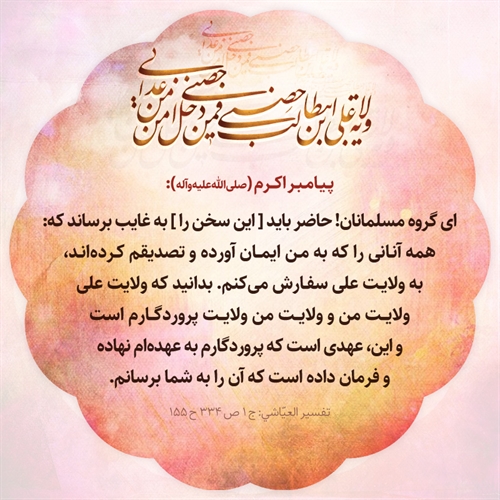 ولایة علی بن ابیطالب حصنی فمن دخل حصنی امن من عذابی
پیامبر اکرم (صلی‌الله‌علیه‌وآله):
ای گروه مسلمانان! حاضر باید [ این سخن را ] به غایب برساند که:
همه آنانی را که به من ایمان آورده و تصدیقم کرده‌اند،
به ولایت علی سفارش می‌کنم. بدانید که ولایت علی
ولایت من و ولایت من ولایت پروردگارم است
و این، عهدی است که پروردگارم به عهده‌ام نهاده
و فرمان داده است که آن را به شما برسانم.
تفسیر العیّاشي: ج ۱ ص ۳۳۴ ح ۱۵۵